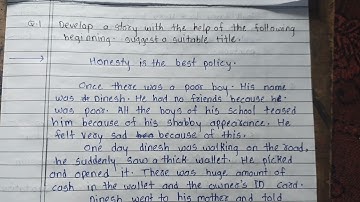 Q.1 Develop a story with the help of the following
beginning. suggest a suitable title.
Honesty is the best policy.
Once there was a poor boy. His name
was Dinesh. He had no friends because he
was poor. All the boys of his school teased
him because of his shabby appearance. He
felt very sad because of this.
One day dinesh was walking on the road,
he suddenly saw a thick wallet. He picked
and opened it. There was huge amount of
cash in the wallet and the owner's ID card.
Dinesh went to his mother and told